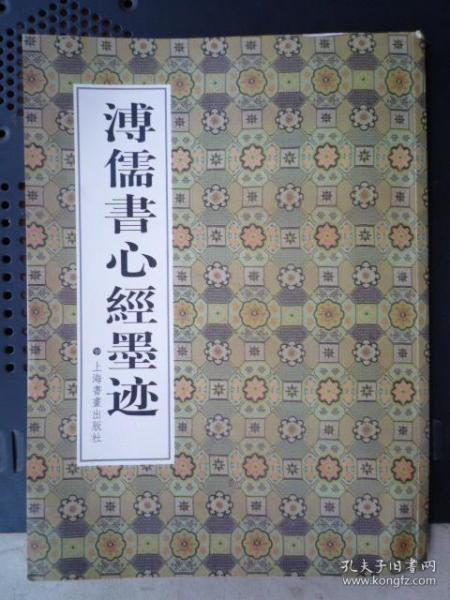 溥儒書心經墨迹
上海書畫出版社
孔夫子旧书网
www.kongfz.com